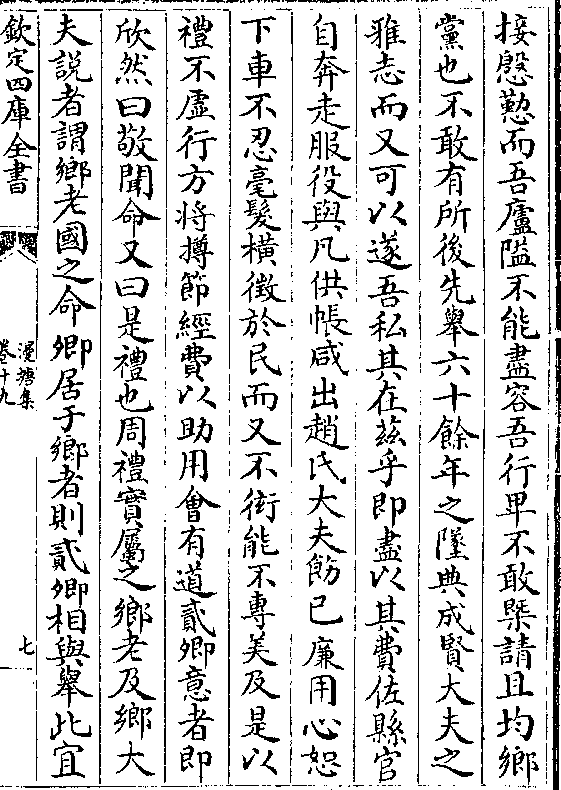 接慇懃而吾廬隘不能盡容吾行卑不敢槩請且均鄉
黨也不敢有所後先舉六十餘年之墜典成賢大夫之
雅志而又可以遂吾私其在茲乎即盡以其費佐縣官
自奔走服役與凡供帳咸出趙氏大夫飭已廉用心恕
下車不忍毫髮橫徵於民而又不衒能不專美及是以
禮不虛行方將撙節經費以助用會有道貳卿意者即
欣然曰敬聞命又曰是禮也周禮實屬之鄉老及鄉大
夫說者謂鄉老國之命卿居于鄉者則貳卿相與舉此宜
欽定四庫全書
漫塘集
卷十九
七